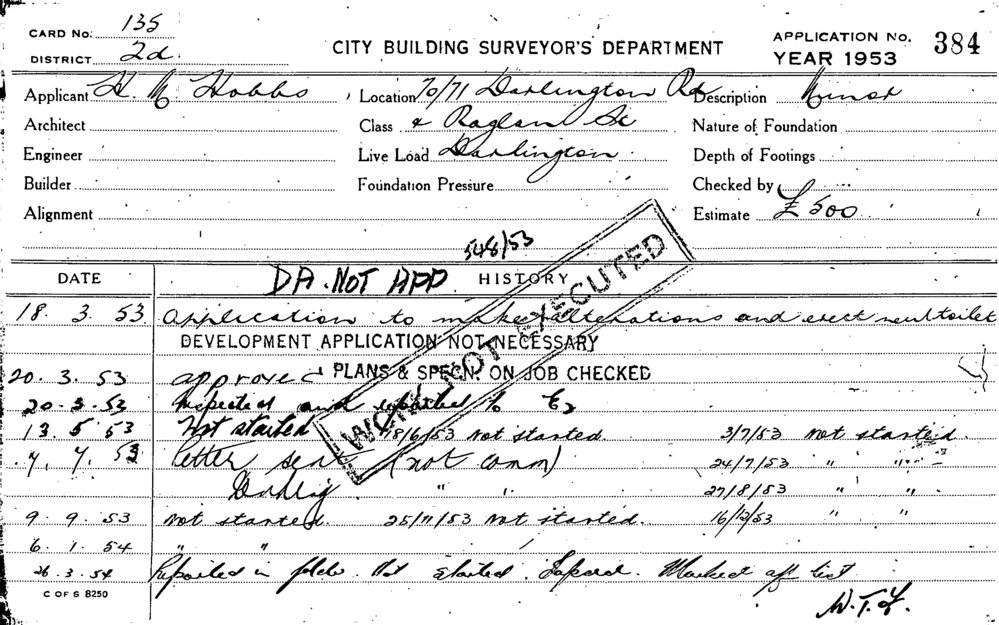 CARD No. 135
DISTRICT 2d.
CITY BUILDING SURVEYOR'S DEPARTMENT
APPLICATION No. 384
YEAR 1953
Applicant H. M. Hobbs
Location 70/71 Darlington Rd
Description Minor
Architect
Class & Raglan St
Nature of Foundation
Engineer
Live Load Darlington
Depth of Footings
Builder
Foundation Pressure
Checked by
Alignment
Estimate £ 500
548/53
DATE
DA. NOT APP
HISTORY
WORK NOT EXECUTED
18. 3. 53 Application to make alterations and erect new toilet
DEVELOPMENT APPLICATION NOT NECESSARY
PLANS & SPECN. ON JOB CHECKED
20. 3. 53 approved
20. 3. 53 Inspected and reported to
13. 5. 53 Not started 18/6/53 Not started. 3/7/53 Not started.
7. 7. 53 letter sent (not comm) 24/7/53 " "
" " 27/8/53 " "
9. 9. 53 Not started. 25/11/53 Not started. 16/12/53 " "
6. 1. 54 " "
26. 3. 54 Reported in Not started. Lapsed. Marked off list
W.T.L.
C OF S 8250